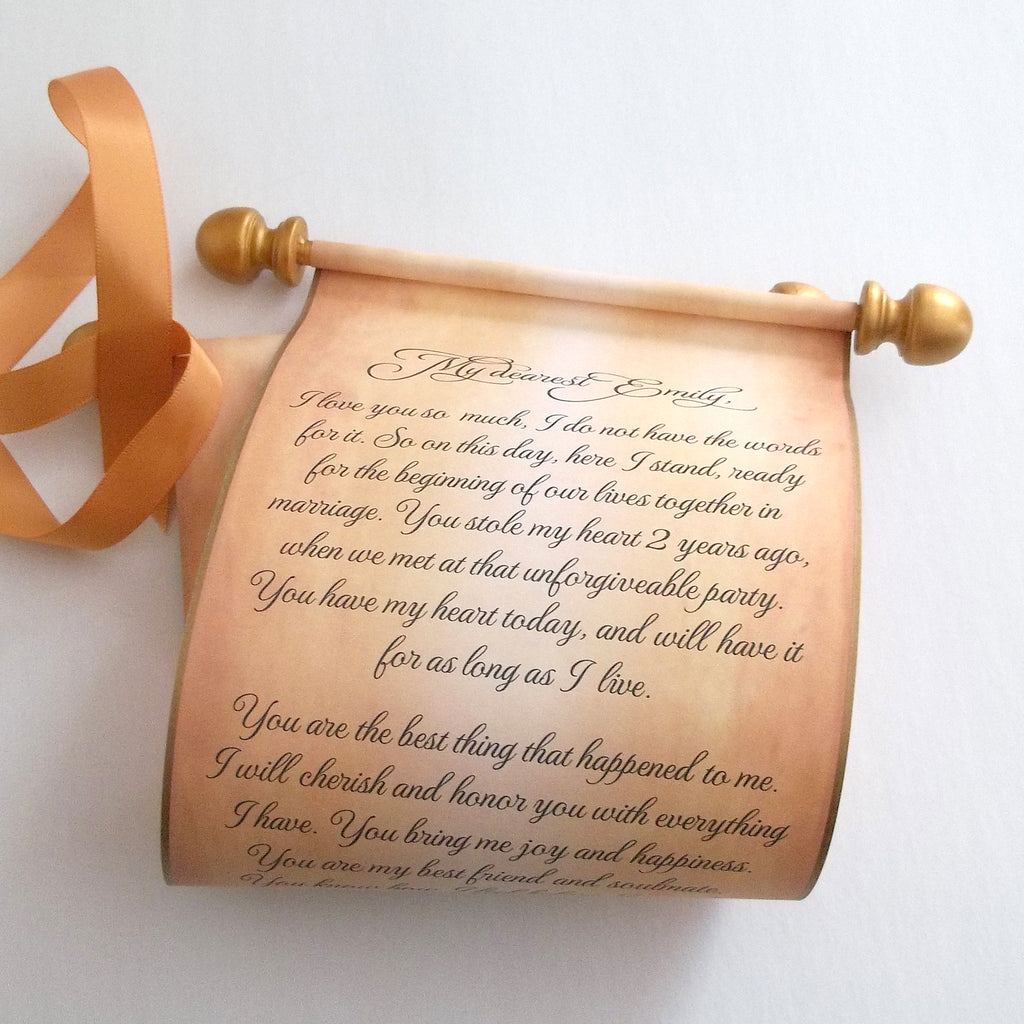 My dearest Emily,
I love you so much, I do not have the words
for it. So on this day, here I stand, ready
for the beginning of our lives together in
marriage. You stole my heart 2 years ago,
when we met at that unforgiveable party.
You have my heart today, and will have it
for as long as I live.
You are the best thing that happened to me.
I will cherish and honor you with everything
I have. You bring me joy and happiness.
You are my best friend and soulmate.
You know how I